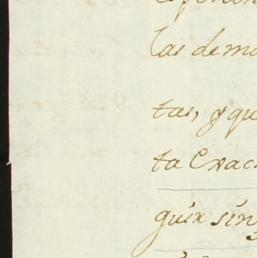 las dema
tas, y qu
ta Exac
guir sin